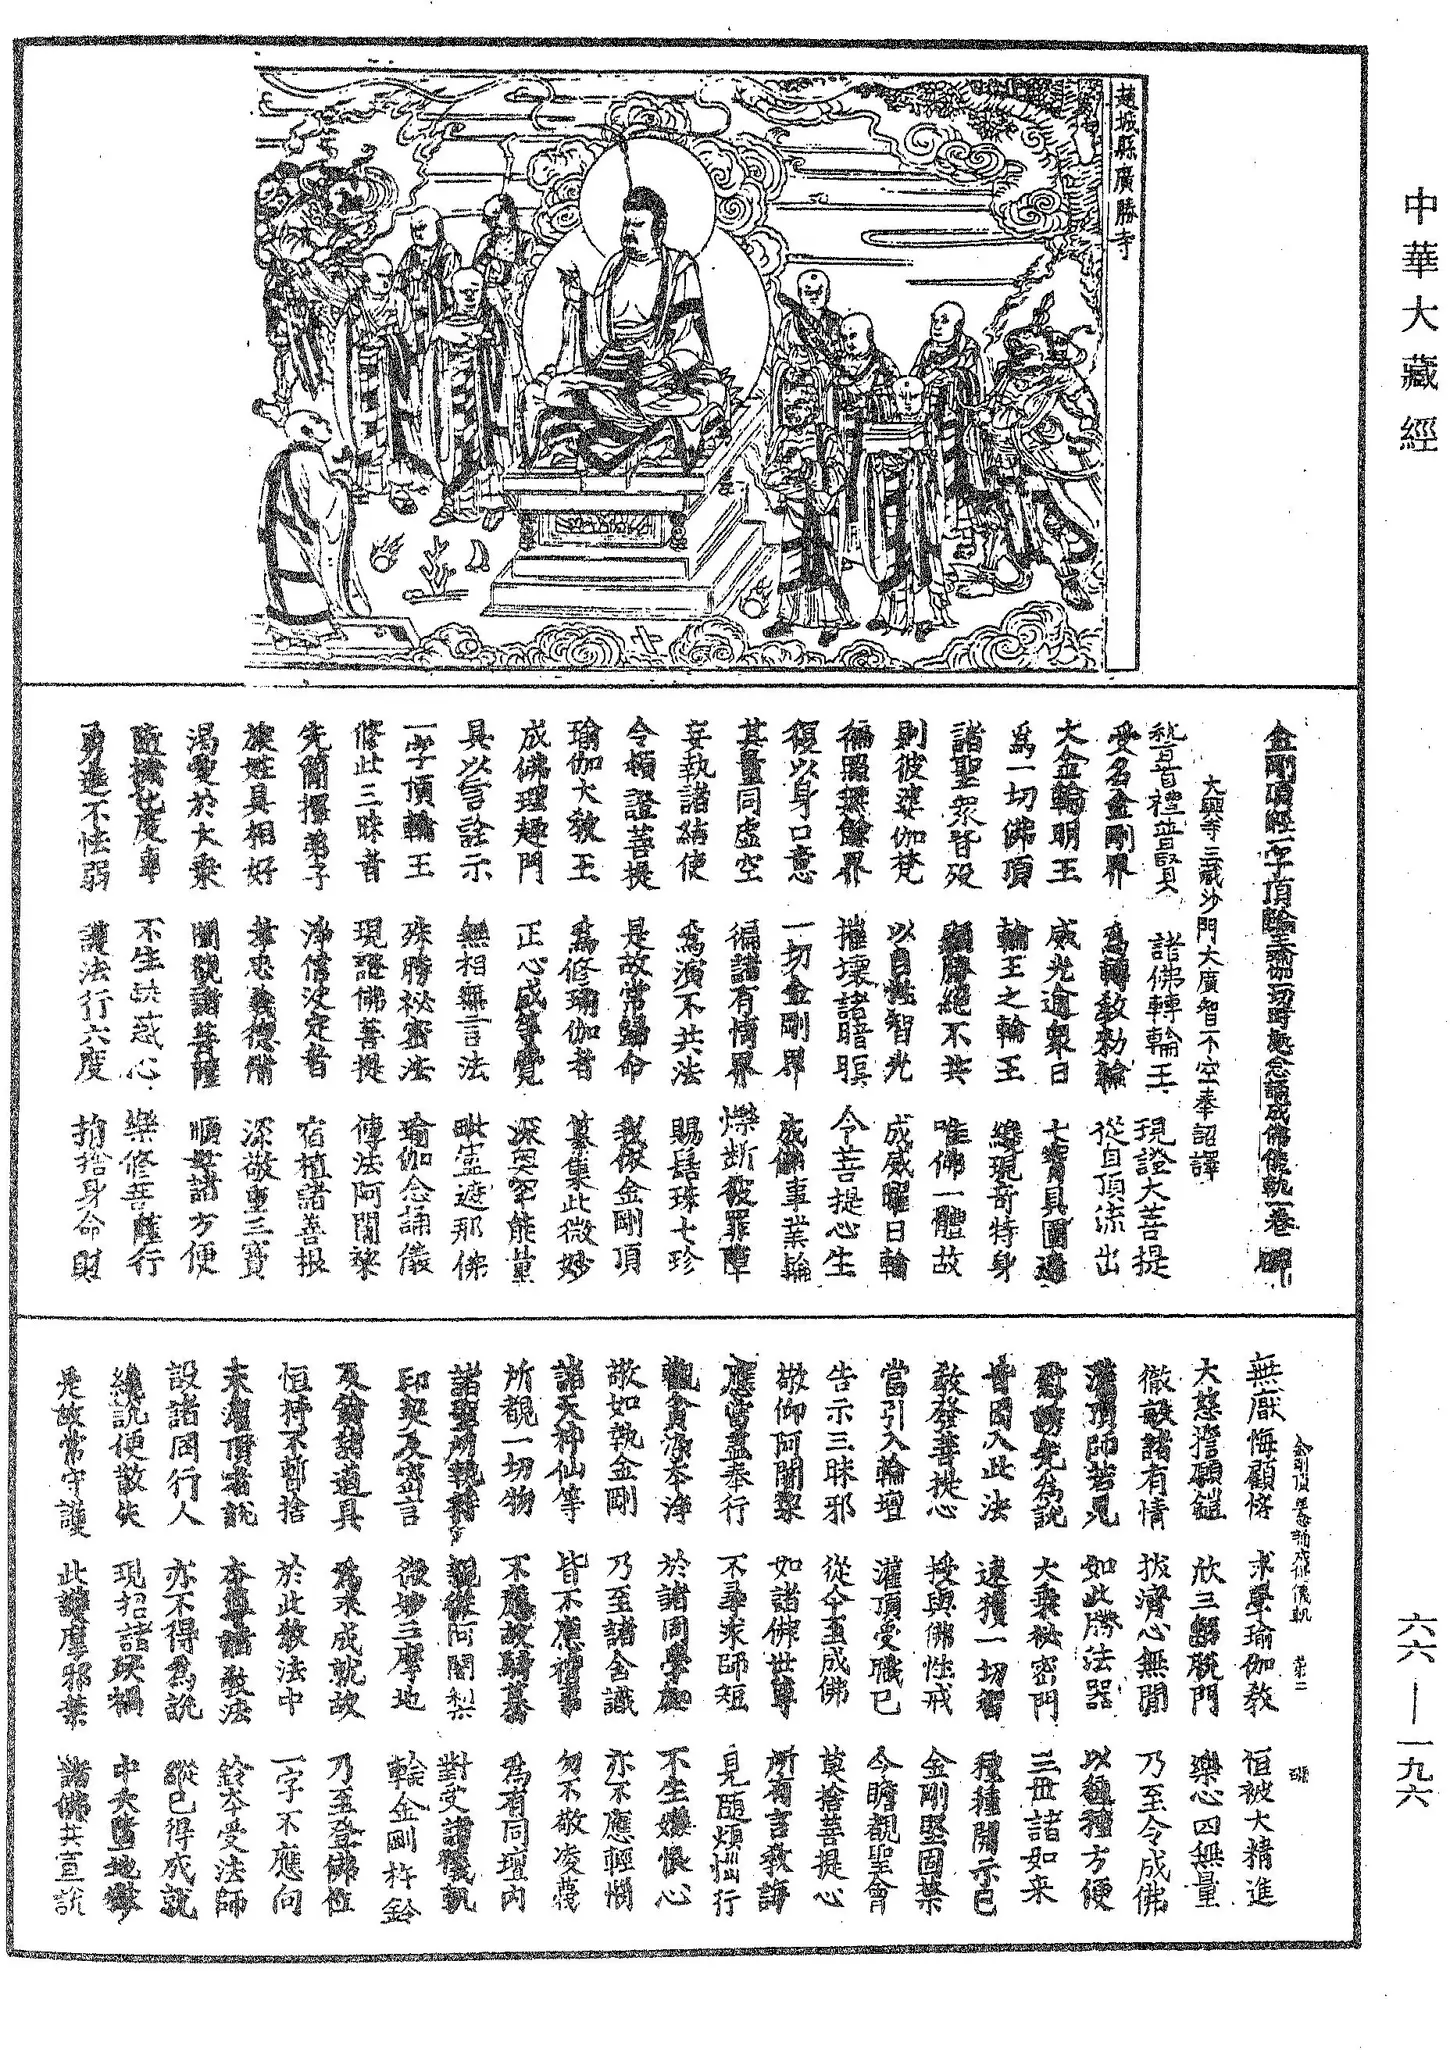 中華大藏經
趙城縣廣勝寺
金剛頂經一字頂輪王瑜伽一切時處念誦成佛儀軌一卷
大興寺三藏沙門大廣智不空奉詔譯
稽首禮普賢 諸佛轉輪王 現證大菩提
受名金剛界 為轉教勅輪 從自頂流出
大金輪明王 威光逾衆日 七寶具圍遶
為一切佛頂 輪王之輪王 纔現奇特身
諸聖衆皆歿 顯勝絕不共 唯佛一體故
則彼婆伽梵 以自性智光 成威曜日輪
徧照無餘界 摧壞諸暗暝 令菩提心生
復以身口意 一切金剛界 成佛事業輪
其量同虛空 徧諸有情界 爍斷彼罪障
妄執諸結使 為演不共法 賜髻珠七珍
令頓證菩提 是故常歸命 我依金剛頂
瑜伽大教王 為修瑜伽者 纂集此微妙
成佛理趣門 正心成等覺 深奧罕能量
具以言詮示 無相無言法 毗盧遮那佛
一字頂輪王 殊勝祕密法 瑜伽念誦儀
修此三昧者 現證佛菩提 傳法阿闍黎
先簡擇弟子 淨信決定者 宿植諸善根
族姓具相好 孝忠義德備 深敬重三寶
渴愛於大乘 闚觀諸菩薩 順世諸方便
隨機化度事 不生缺減心 樂修菩薩行
勇進不怯弱 護法行六度 捐捨身命財
金剛頂經念誦成佛儀軌 第二
無厭悔顧悋 求學瑜伽教 恒被大精進
大慈擔願鎧 欣三解脫門 樂心四無量
徹設諸有情 拔濟心無間 乃至令成佛
灌頂師若見 如此勝法器 以種種方便
慰誘先為說 大乘祕密門 三世諸如来
昔因入此法 速獲一切智 種種開示已
教發菩提心 授與佛性戒 金剛堅固禁
當引入輪壇 灌頂受職已 令瞻覩聖會
告示三昧邪 從今至成佛 莫捨菩提心
敬仰阿闍黎 如諸佛世尊 所有言教誨
應當盡奉行 不尋求師短 見隨煩惱行
觀貪染本淨 於諸同學處 不生嫌恨心
敬如執金剛 乃至諸含識 亦不應輕惱
諸天神仙等 皆不應禮事 勿不敬凌蔑
所覩一切物 不應故騎驀 為有同壇內
諸聖所執持 親從阿闍梨 對受諸儀軌
印契及密言 微妙三摩地 輪金剛杵鈴
及餘諸道具 為未成就故 乃至登佛位
恒持不暫捨 於此教法中 一字不應向
未灌頂者說 本尊諸教法 鈴夲受法師
設諸同行人 亦不得為說 縱已得成就
纔說便散失 現招諸殃禍 中夭墮地獄
是故常守護 此護摩邪業 諸佛共宣說
六六—一九六